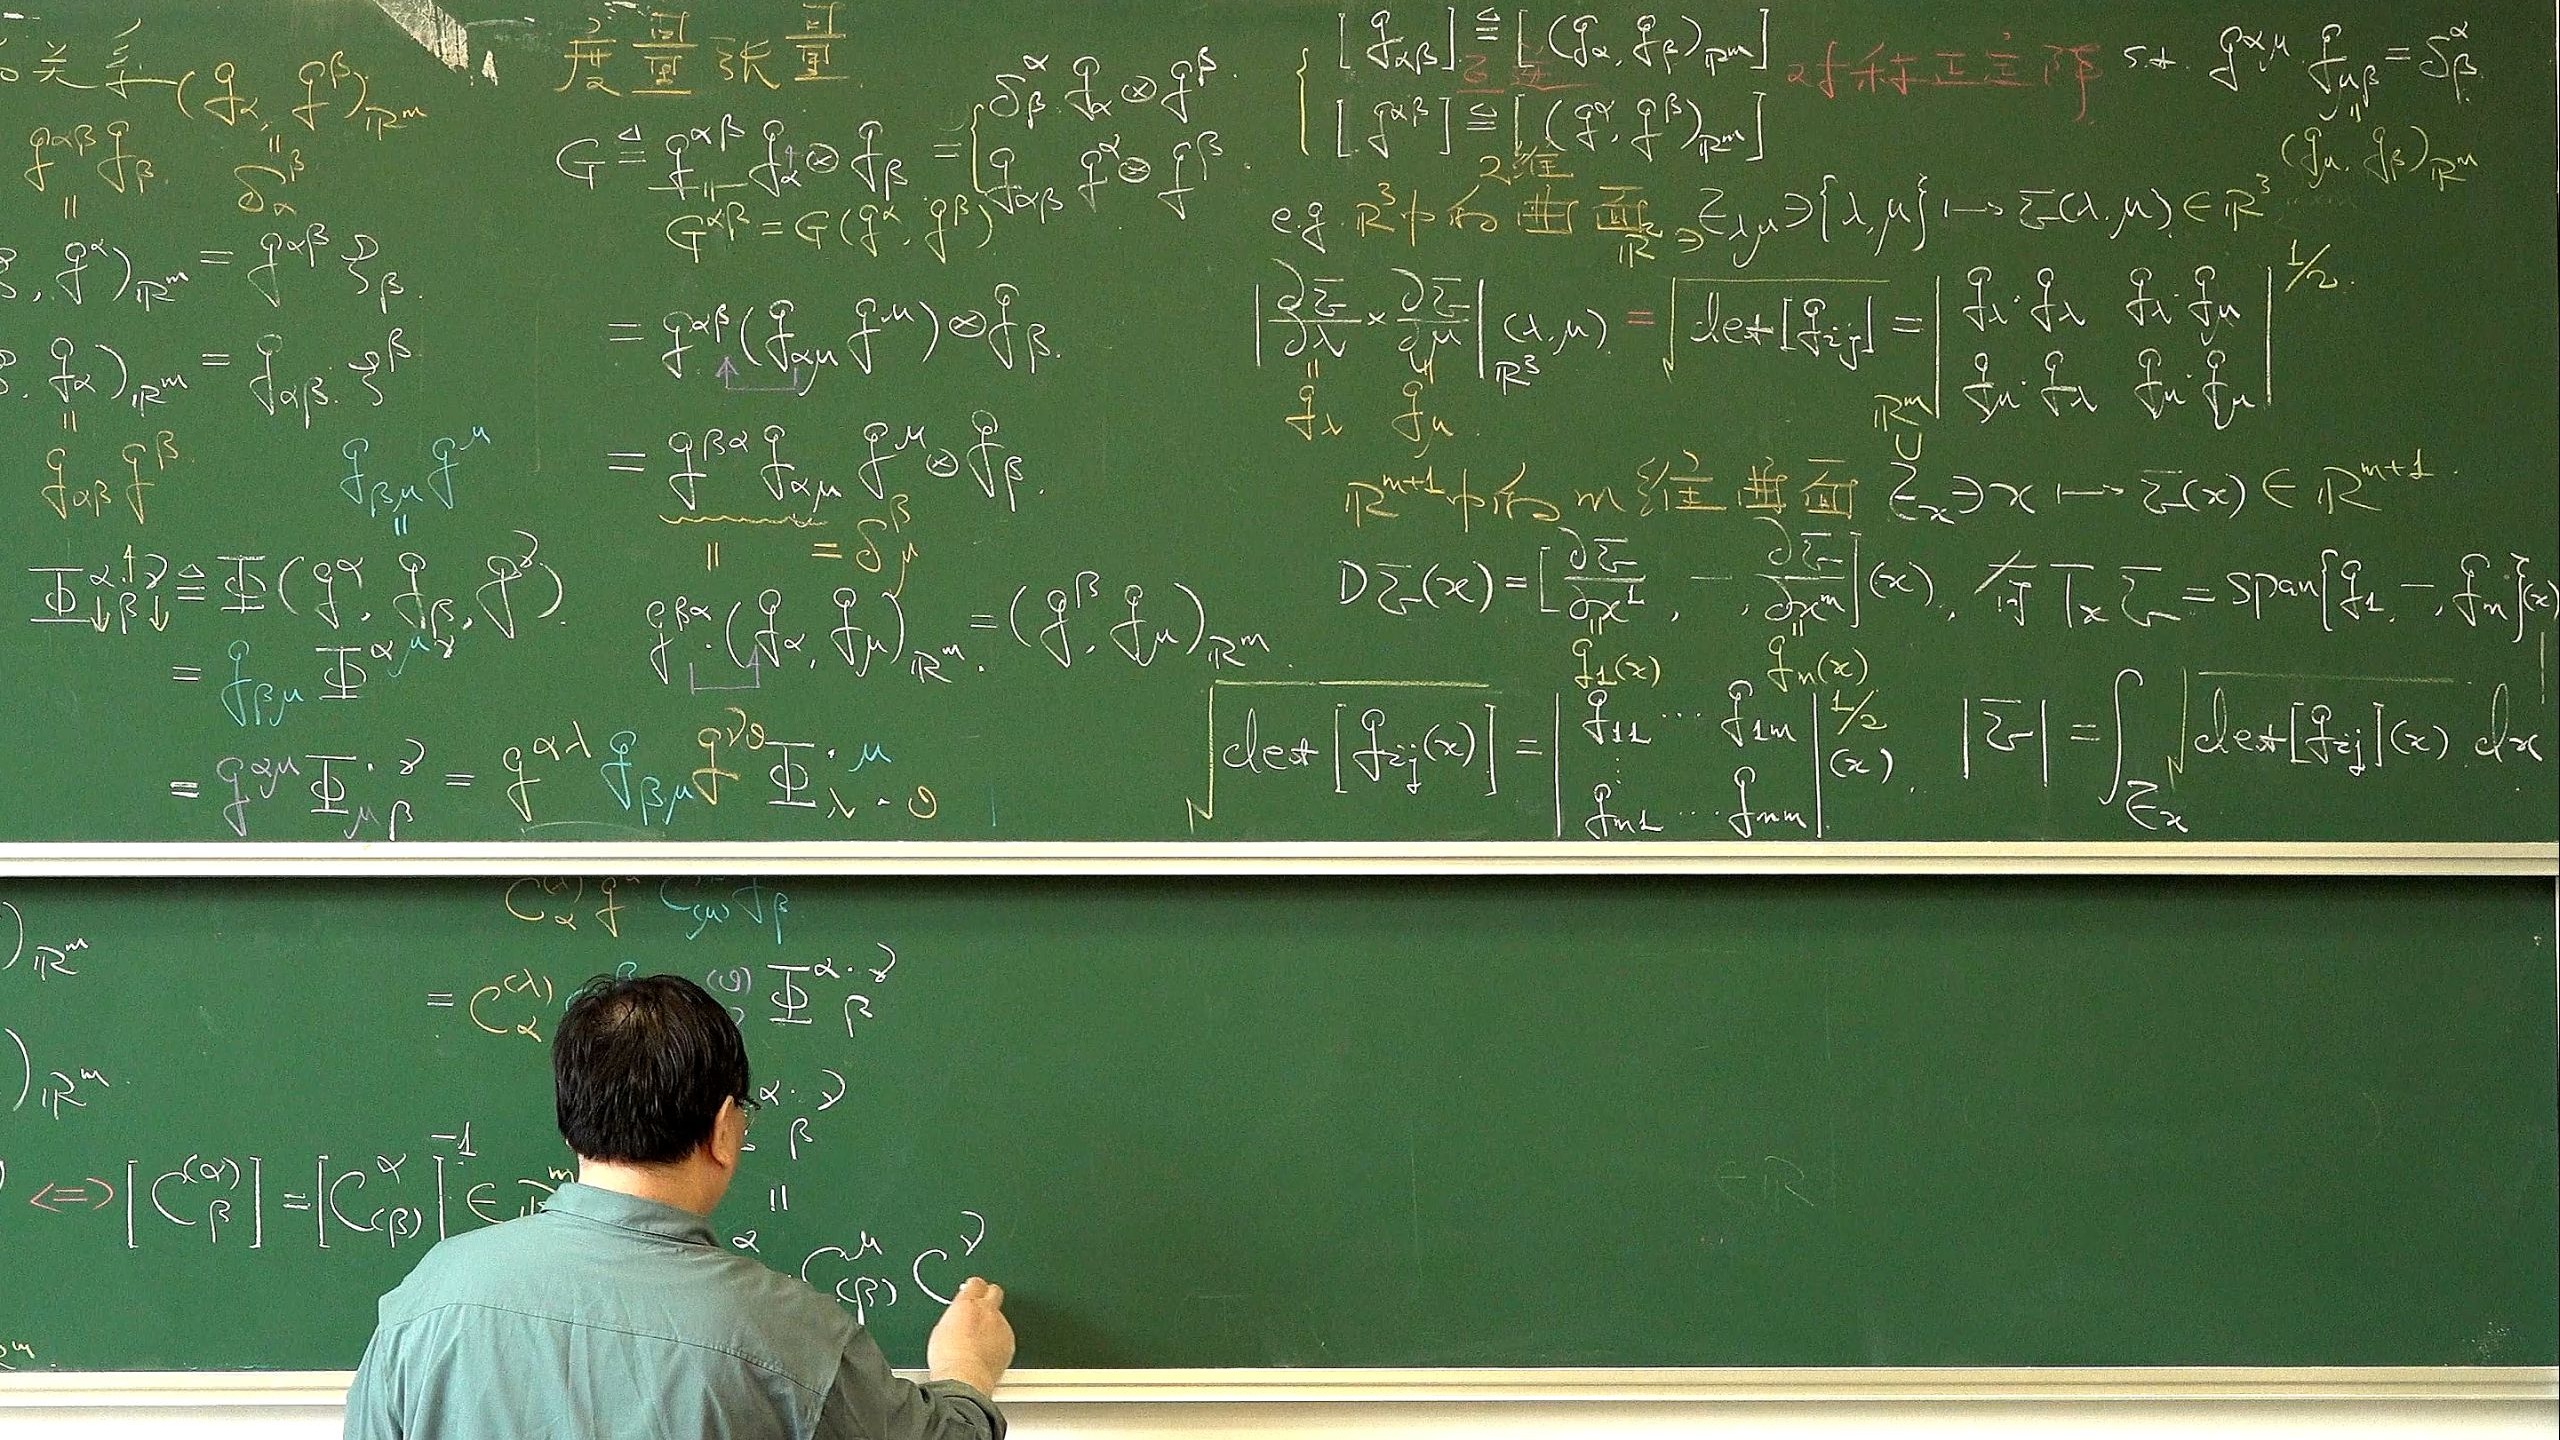 关系 (g_α, g^β)_{ℝ^m}
g^{αβ} g_β
δ_α^β
, g^α)_{ℝ^m} = g^{αβ} ξ_β.
, g_α)_{ℝ^m} = g_{αβ} ξ^β
g_{αβ} g^β
g_{βμ} g^μ
Φ^{α·γ}_{·β·} ≜ Φ(g^α, g_β, g^γ).
= g_{βμ} Φ^{αμγ}
= g^{αμ} Φ_{μβ}^{··γ} = g^{αλ} g_{βμ} g^{γθ} Φ_{λ·θ}^{·μ}
度量张量
G ≜ g^{αβ} g_α ⊗ g_β = { δ_β^α g_α ⊗ g^β.
g_{αβ} g^α ⊗ g^β.
G^{αβ} = G(g^α, g^β)
= g^{αβ} (g_{αμ} g^μ) ⊗ g_β.
= g^{βα} g_{αμ} g^μ ⊗ g_β.
= δ_μ^β
g^{βα}·(g_α, g_μ)_{ℝ^m} = (g^β, g_μ)_{ℝ^m}.
{ [g_{αβ}] ≜ [(g_α, g_β)_{ℝ^m}]
[g^{αβ}] ≜ [(g^α, g^β)_{ℝ^m}]
对称正定阵 s.t. g^{αμ} g_{μβ} = δ_β^α.
(g_μ, g_β)_{ℝ^m}
2维
e.g. ℝ^3中的曲面 ℝ^2 ∋ Σ_{λμ} ∋ {λ,μ} ↦ Σ(λ,μ) ∈ ℝ^3
|∂Σ/∂λ × ∂Σ/∂μ|_{ℝ^3} (λ,μ) = √det[g_{ij}] = | g_λ·g_λ g_λ·g_μ
g_μ·g_λ g_μ·g_μ |^{1/2}.
g_λ g_μ
ℝ^m
∪
ℝ^{m+1}中的m维曲面 Σ_x ∋ x ↦ Σ(x) ∈ ℝ^{m+1}.
DΣ(x) = [∂Σ/∂x^1, –, ∂Σ/∂x^m](x), 有 T_xΣ = span{g_1, –, g_m}(x)
g_1(x) g_m(x)
√det[g_{ij}(x)] = | g_{11} ··· g_{1m}
⋮
g_{m1} ··· g_{mm} |^{1/2} (x). |Σ| = ∫_{Σ_x} √det[g_{ij}](x) dx.
)_{ℝ^m}
)_{ℝ^m}.
= C_α^{(λ)} Φ^{α·γ}_{·β}
⟺ [C_β^{(α)}] = [C_{(β)}^α]^{-1} ∈
C_{(β)}^μ C^γ